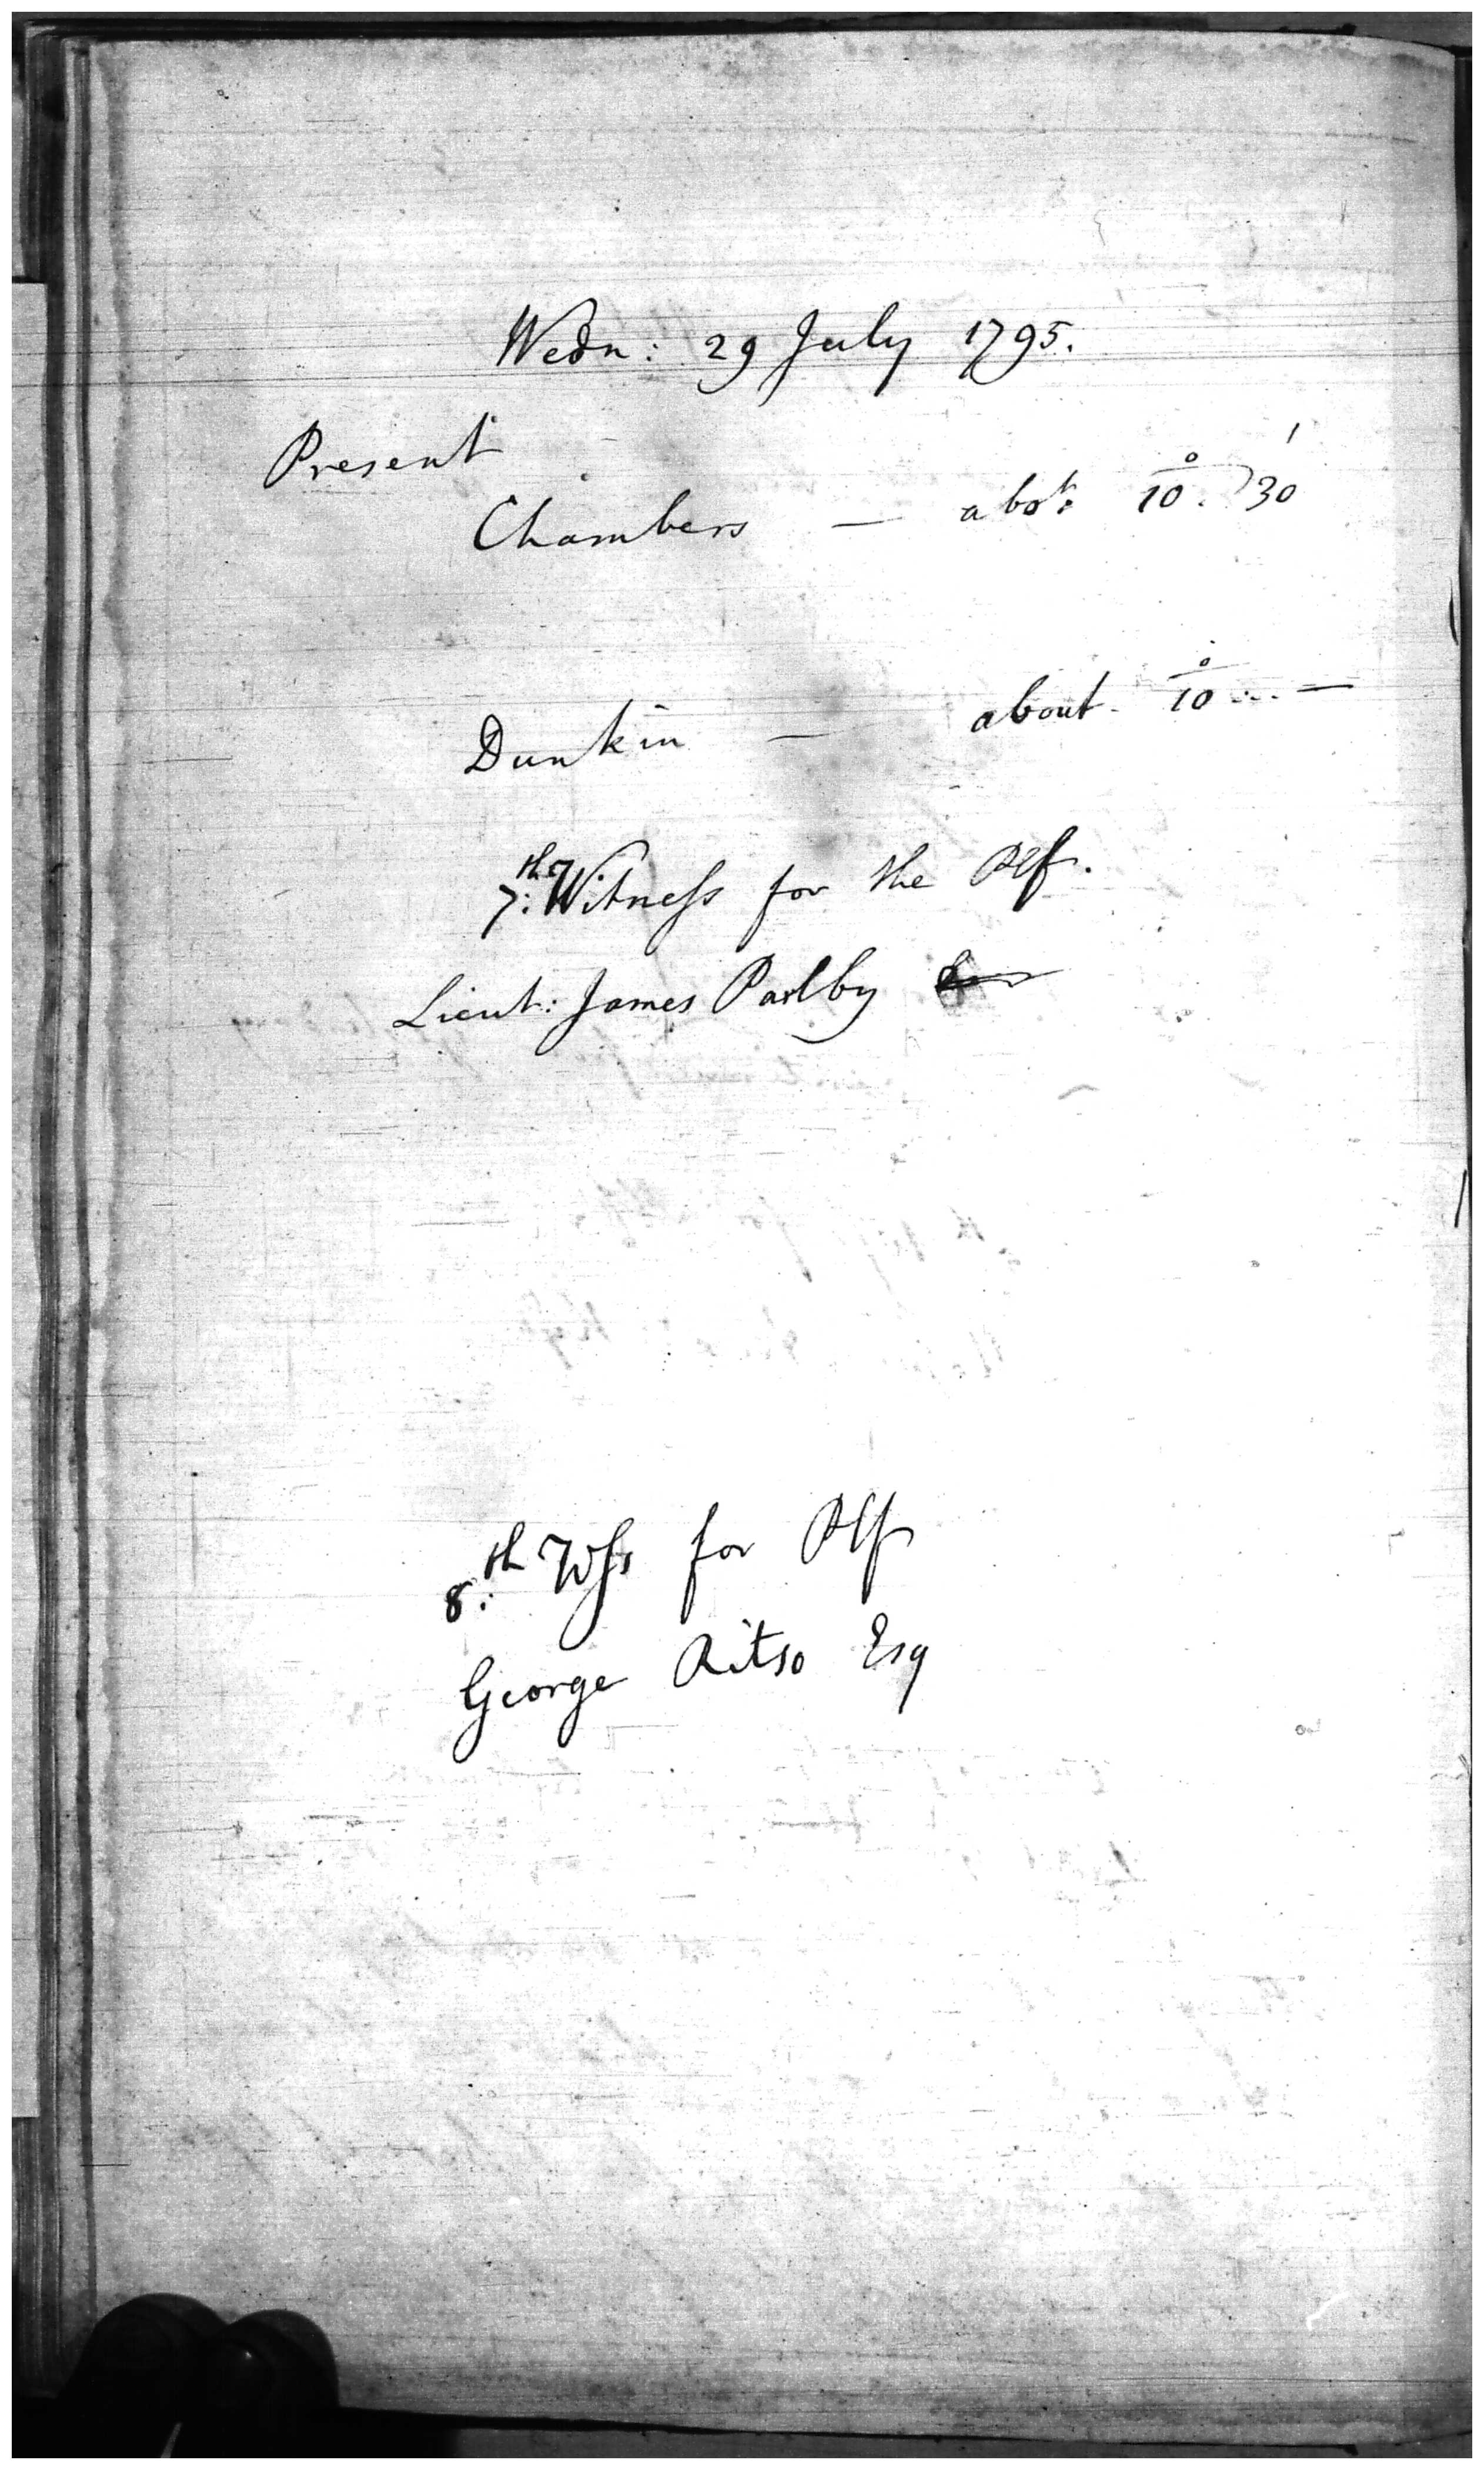 Wedn: 29 July 1795.
Present
Chambers — abot: 10. 30
Dunkin — about 10 —
7th: Witness for the Plf.
Lieut: James Parlby
8th: Wss for Plf
George Ritso Esq